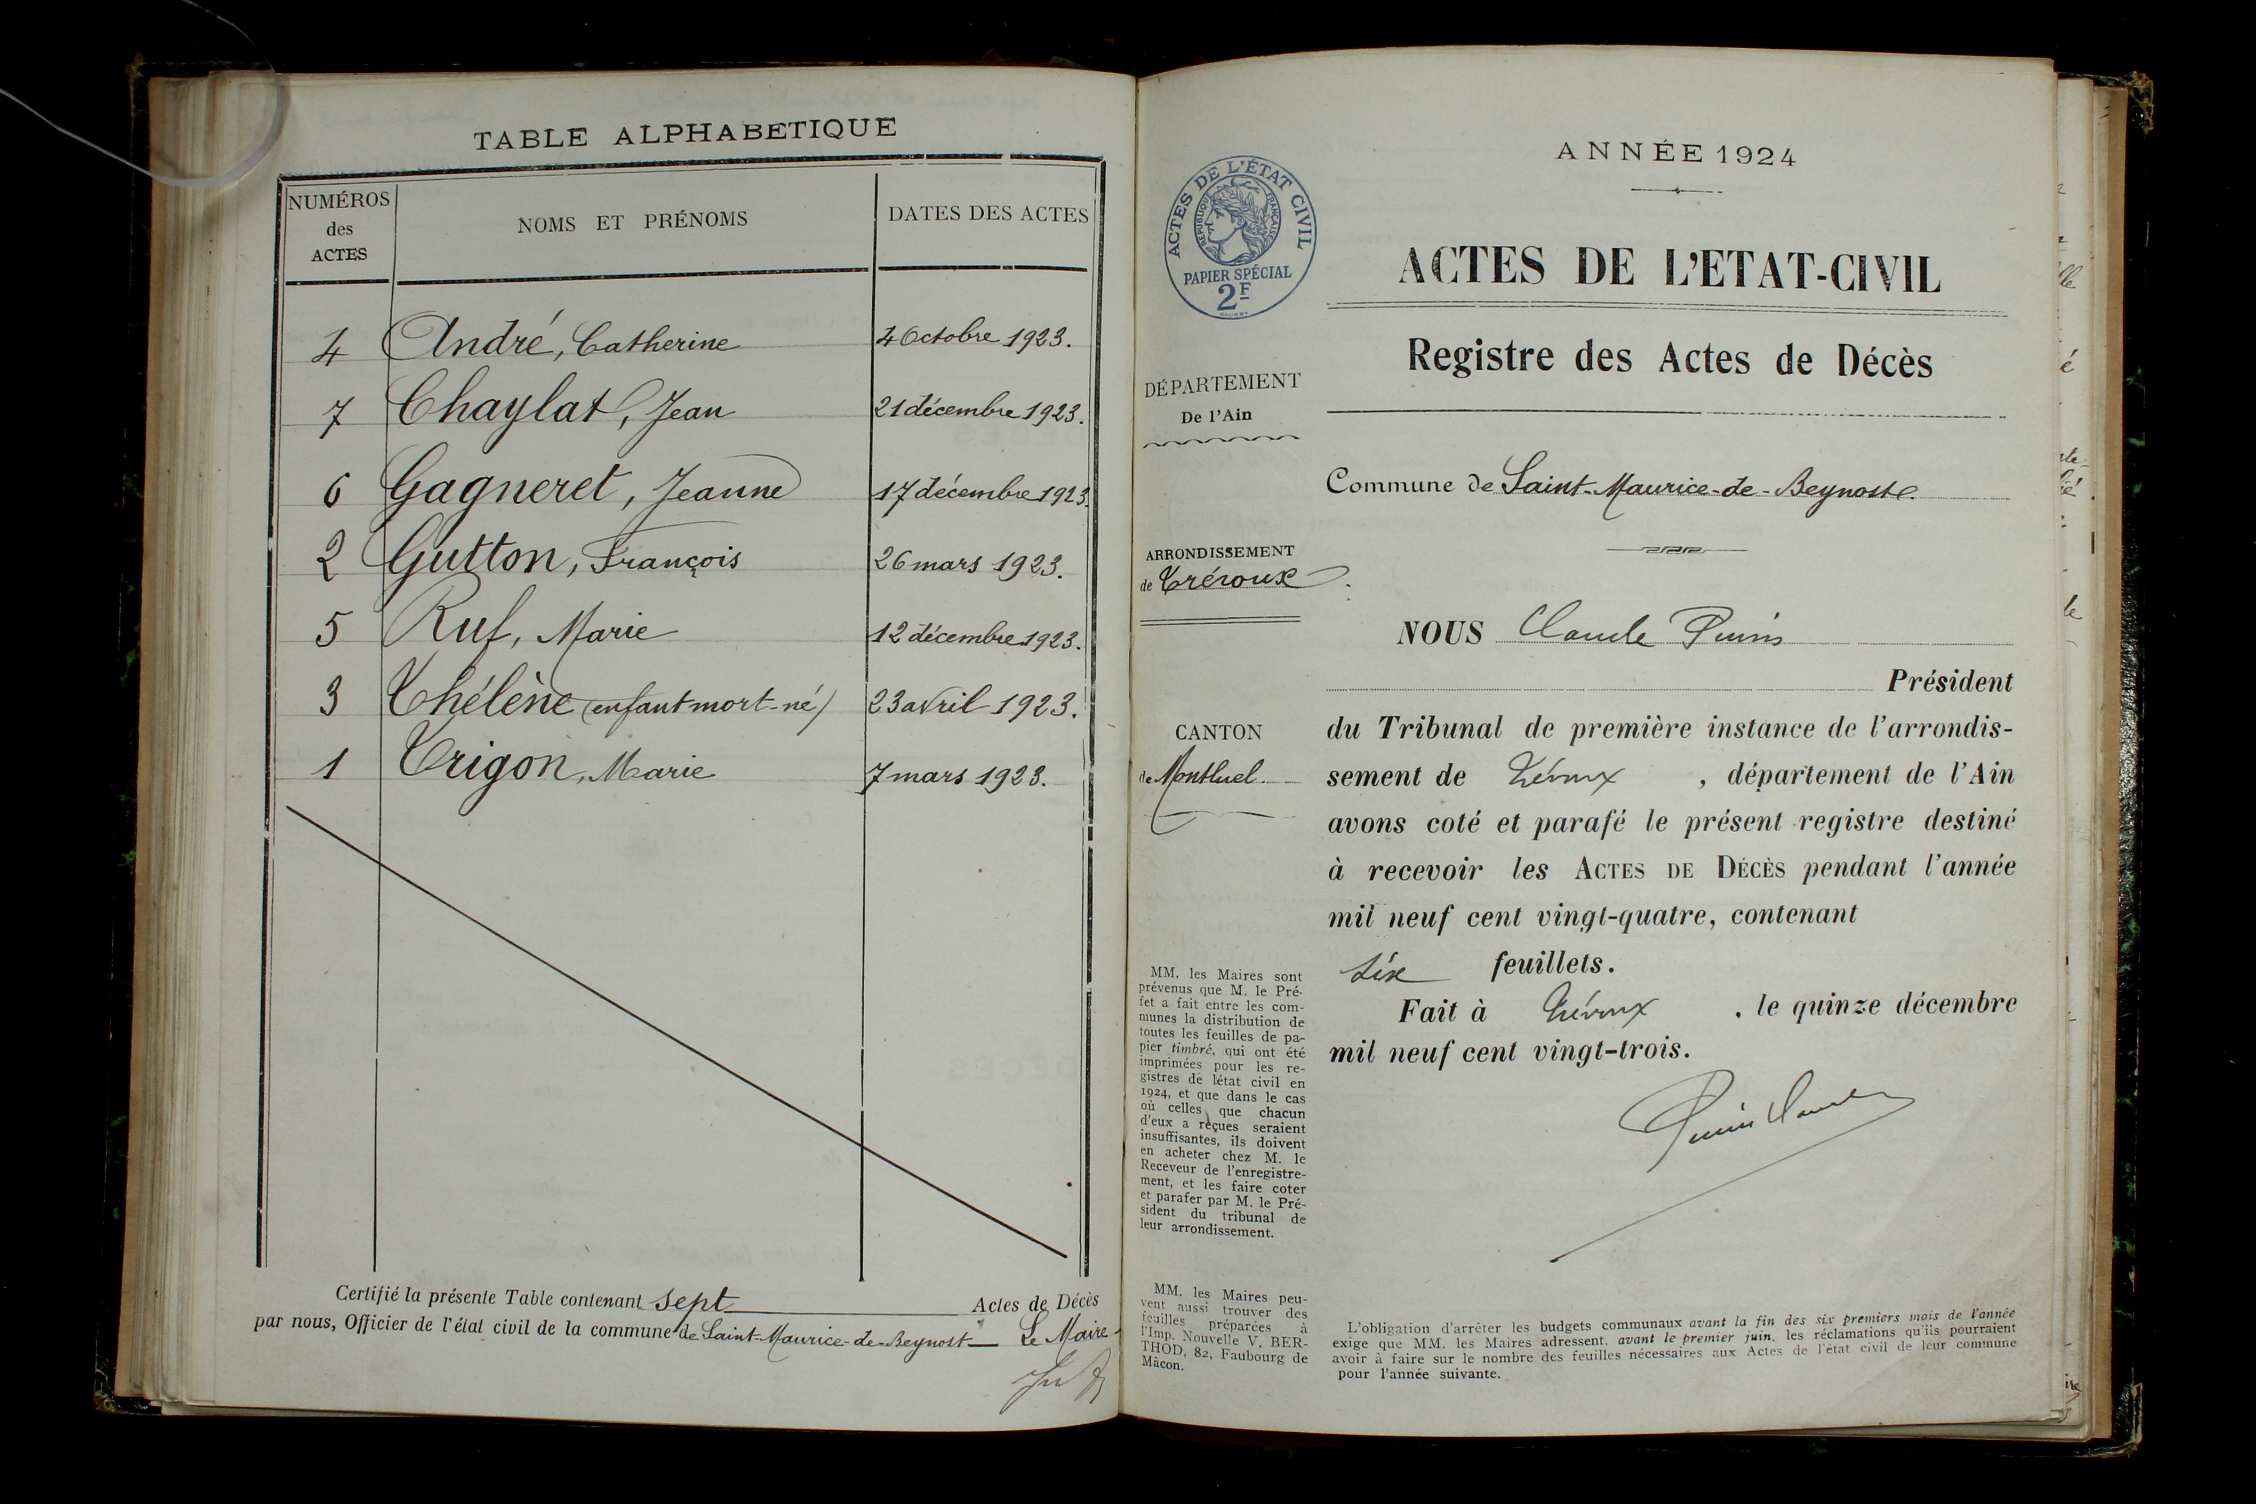 TABLE ALPHABETIQUE
NUMÉROS des ACTES NOMS ET PRÉNOMS DATES DES ACTES
4 André, Catherine 4 Octobre 1923.
7 Chaylat, Jean 21 décembre 1923.
6 Gagneret, Jeanne 17 décembre 1923.
2 Gutton, François 26 mars 1923.
5 Ruf, Marie 12 décembre 1923.
3 Thélène (enfant mort-né) 23 avril 1923.
1 Trigon, Marie 7 mars 1923.
Certifié la présente Table contenant sept Actes de Décès
par nous, Officier de l'état civil de la commune de Saint-Maurice-de-Beynost Le Maire
ACTES DE L'ÉTAT CIVIL
RÉPUBLIQUE FRANÇAISE
PAPIER SPÉCIAL
2F
DÉPARTEMENT
De l'Ain
ARRONDISSEMENT
de Trévoux
CANTON
de Montluel
MM. les Maires sont
prévenus que M. le Pré-
fet a fait entre les com-
munes la distribution de
toutes les feuilles de pa-
pier timbré, qui ont été
imprimées pour les re-
gistres de l'état civil en
1924, et que dans le cas
où celles que chacun
d'eux a reçues seraient
insuffisantes, ils doivent
en acheter chez M. le
Receveur de l'enregistre-
ment, et les faire coter
et parafer par M. le Pré-
sident du tribunal de
leur arrondissement.
MM. les Maires peu-
vent aussi trouver des
feuilles préparées à
l'Imp. Nouvelle V. BER-
THOD, 82, Faubourg de
Mâcon.
ANNÉE 1924
ACTES DE L'ETAT-CIVIL
Registre des Actes de Décès
Commune de Saint-Maurice-de-Beynost.
NOUS Claude
Président
du Tribunal de première instance de l'arrondis-
sement de Trévoux, département de l'Ain
avons coté et parafé le présent registre destiné
à recevoir les ACTES DE DÉCÈS pendant l'année
mil neuf cent vingt-quatre, contenant
six feuillets.
Fait à Trévoux, le quinze décembre
mil neuf cent vingt-trois.
L'obligation d'arrêter les budgets communaux avant la fin des six premiers mois de l'année
exige que MM. les Maires adressent, avant le premier juin, les réclamations qu'ils pourraient
avoir à faire sur le nombre des feuilles nécessaires aux Actes de l'état civil de leur commune
pour l'année suivante.